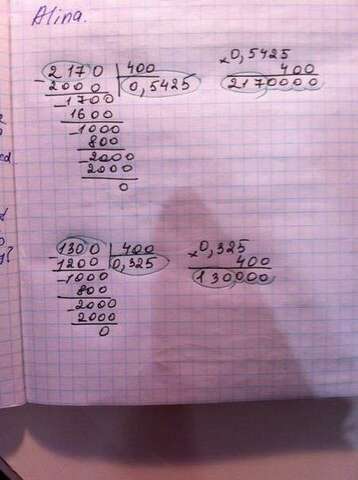 Alina.
2170 | 400
- 2000 | 0,5425
- 1700
1600
- 1000
800
- 2000
2000
0
× 0,5425
400
2170000
1300 | 400
- 1200 | 0,325
- 1000
800
- 2000
2000
0
× 0,325
400
130000